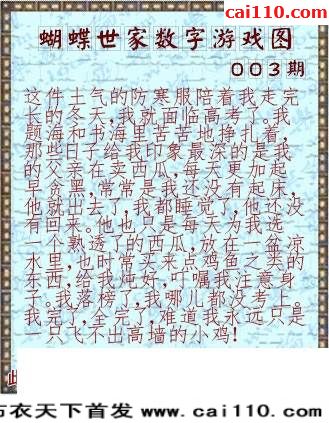 cai110.com
蝴蝶世家数字游戏图
003期
这件土气的防寒服陪着我走完
长的冬天,我就面临高考了。我
题海和书海里苦苦地挣扎着,
那些日子给我印象最深的是我
的父亲在卖西瓜,每天更加起
早贪黑,常常是我还没有起床,
他就出去了,我都睡觉了,他还没
有回来。他也只是每天为我选
一个熟透了的西瓜,放在一盆凉
水里,也时常买来点鸡鱼之类的
东西,给我炖好,吁嘱我注意身
子。我落榜了,我哪儿都没考上。
我完了,全完了,难道我永远只是
一只飞不出高墙的小鸡!
衣天下首发 www.cai110.com